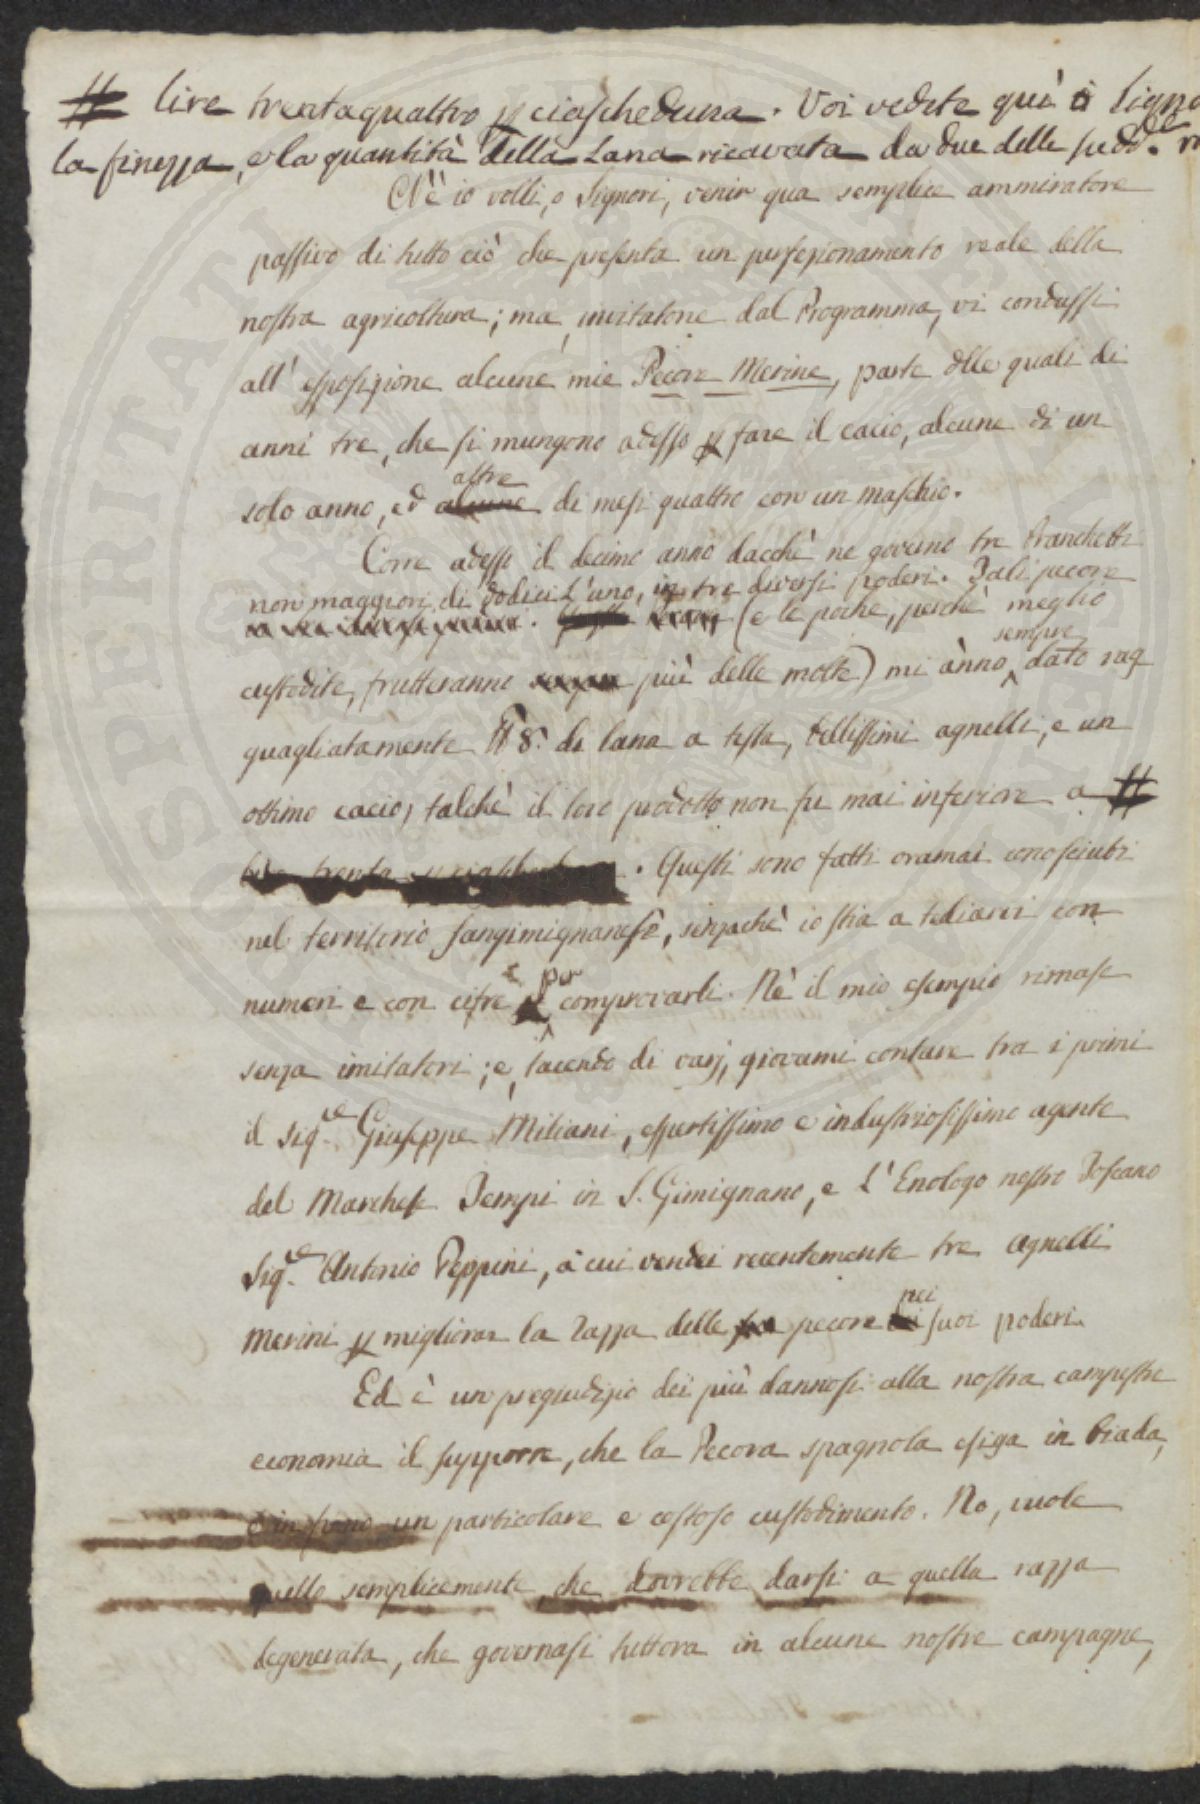 # lire trentaquattro p ciascheduna. Voi vedete quì o Signo
la finezza, e la quantità della Lana ricavata da due delle sudd.e
Nè io volli, o Signori, venir qua semplice ammiratore
passivo di tutto ciò che presenta un perfezionamento reale della
nostra agricoltura; ma, invitatone dal Programma, vi condussi
all' esposizione alcune mie Pecore Merine, parte dlle quali di
anni tre, che si mungono adesso p fare il cacio, alcune di un
altre
solo anno, ed alcune di mesi quattro con un maschio.
Corre adesso il decimo anno dacchè ne governo tre branchetti
non maggiori di dodici l'uno, in tre diversi poderi. Tali pecore
(e le poche, perchè meglio
sempre
custodite, frutteranno più delle molte) mi ànno dato rag
guagliatamente ℔ 8. di lana a testa, bellissimi agnelli, e un
ottimo cacio, talchè il loro prodotto non fu mai inferiore a #
lire trenta p ciascheduna. Questi sono fatti oramai conosciuti
nel territorio sangimignanese, senzachè io stia a tediarvi con
e per
numeri e con cifre comprovarli. Nè il mio esempio rimase
senza imitatori; e, tacendo di varj, giovami contare tra i primi
il Sig.re Giuseppe Miliani, espertissimo e industriosissimo agente
del Marchese Tempi in S. Gimignano, e l'Enologo nostro Toscano
Sig.re Antonio Peppini, a cui vendei recentemente tre agnelli
nei
merini p migliorar la razza delle pecore dei suoi poderi.
Ed è un pregiudizio dei più dannosi alla nostra campestre
economia il supporre, che la Pecora spagnola esiga in biada,
e in fieno un particolare e costoso custodimento. No, vuole
quello semplicemente, che dovrebbe darsi a quella razza
degenerata, che governasi tuttora in alcune nostre campagne,